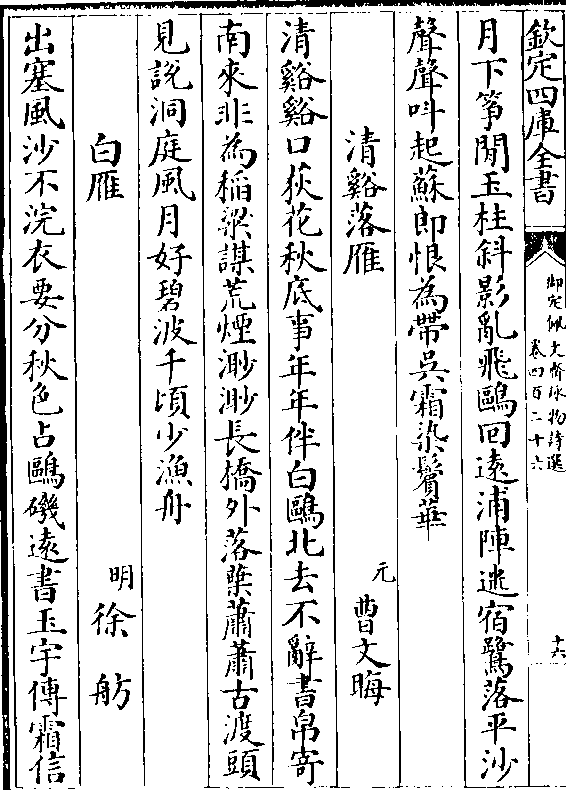 欽定四庫全書
御定佩文齋詠物詩選
卷四百二十六
十六
月下箏閒玉柱斜影亂飛鷗回遠浦陣迷宿鷺落平沙
聲聲呌起蘇郎恨為帶吳霜染鬢華
清谿落雁
元
曹文晦
清谿谿口荻花秋底事年年伴白鷗北去不辭書帛寄
南來非為稻粱謀荒煙渺渺長橋外落葉蕭蕭古渡頭
見説洞庭風月好碧波千頃少漁舟
白雁
明
徐舫
出塞風沙不浣衣要分秋色占鷗磯遠書玉宇傳霜信